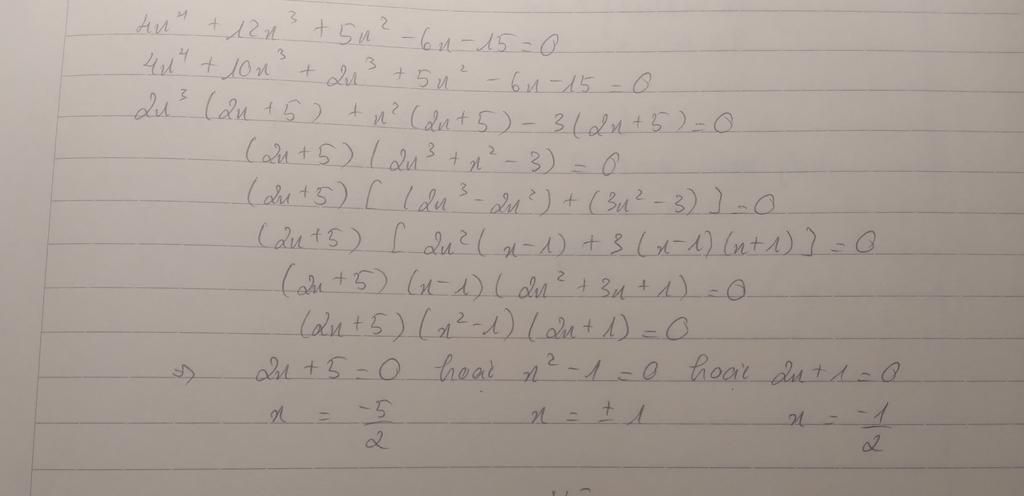 4x⁴ + 12x³ + 5x² - 6x - 15 = 0
4x⁴ + 10x³ + 2x³ + 5x² - 6x - 15 = 0
2x³ (2x + 5) + x² (2x + 5) - 3 (2x + 5) = 0
(2x + 5) (2x³ + x² - 3) = 0
(2x + 5) [ (2x³ - 2x²) + (3x² - 3) ] = 0
(2x + 5) [ 2x² (x - 1) + 3 (x - 1) (x + 1) ] = 0
(2x + 5) (x - 1) (2x² + 3x + 1) = 0
(2x + 5) (x² - 1) (2x + 1) = 0
⇒ 2x + 5 = 0 hoặc x² - 1 = 0 hoặc 2x + 1 = 0
x = -5/2 x = ± 1 x = -1/2